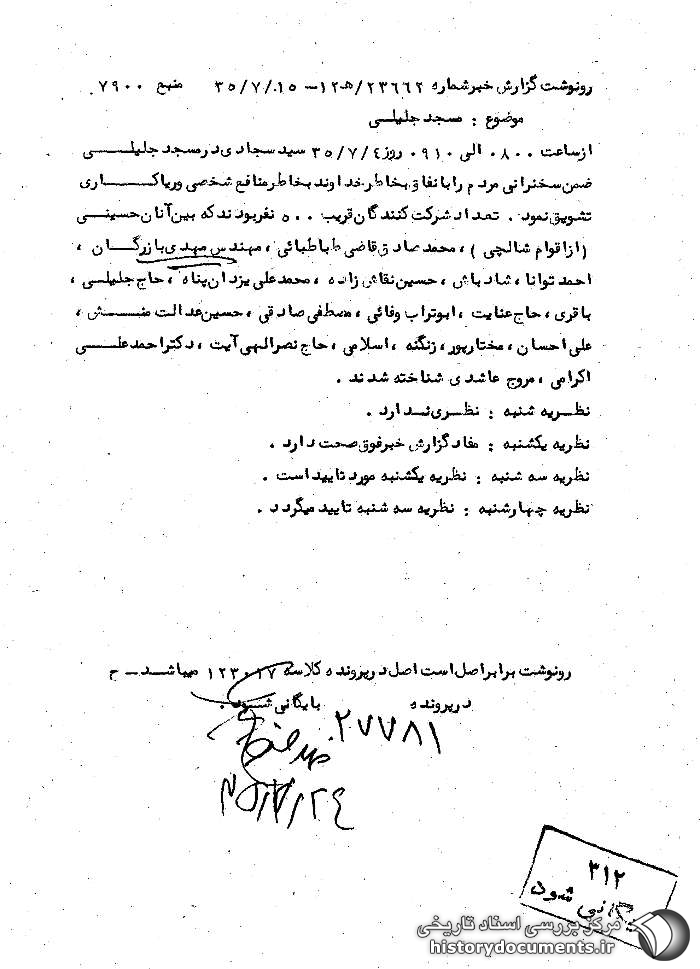 رونوشت گزارش خبر شماره ۲۳۶۶۲/ﻫ ۱۲ - ۳۵/۷/۰۱۵ منبع ۷۹۰۰
موضوع : مسجد جلیلی
از ساعت ۰۸۰۰ الی ۰۹۱۰ روز ۳۵/۷/۴ سید سجادی در مسجد جلیلی
ضمن سخنرانی مردم را با نفاق بخاطر خداوند بخاطر منافع شخصی و ریاکاری
تشویق نمود . تعداد شرکت کنندگان قریب ۵۰۰ نفر بودند که بین آنان حسینی
(از اقوام شالچی ) ، محمد صادق قاضی طباطبائی ، مهندس مهدی بازرگان ،
احمد توانا ، شادباش ، حسین نقاش زاده ، محمدعلی یزدان پناه ، حاج جلیلی ،
باقری ، حاج عنایت ، ابوتراب وفائی ، مصطفی صادقی ، حسین عدالت منش ،
علی احسان ، مختارپور ، زنگنه ، اسلامی ، حاج نصرالهی آیت ، دکتر احمد علی
اکرامی ، مروج عاشدی شناخته شدند .
نظریه شنبه : نظری ندارد .
نظریه یکشنبه : مفاد گزارش خبر فوق صحت دارد .
نظریه سه شنبه : نظریه یکشنبه مورد تایید است .
نظریه چهارشنبه : نظریه سه شنبه تایید میگردد .
رونوشت برابر اصل است اصل در پرونده کلاسه ۱۲۳۰۱۷ میباشد - ح
در پرونده بایگانی شود .
۲۷۷۸۱
۳۱۲
بایگانی شود
مرکز بررسی اسناد تاریخی
historydocuments.ir